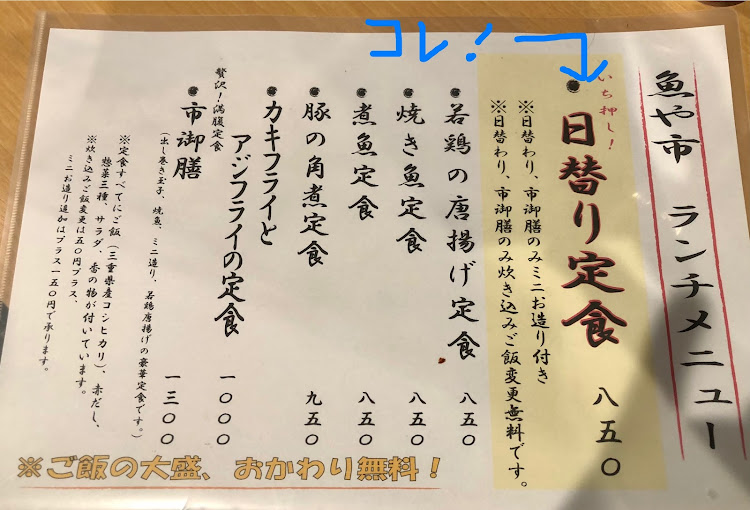 コレ!
魚や市 ランチメニュー
いち押し!
日替り定食 八五〇
※日替わり、市御膳のみミニお造り付き
※日替わり、市御膳のみ炊き込みご飯変更無料です。
若鶏の唐揚げ定食 八五〇
焼き魚定食 八五〇
煮魚定食 八五〇
豚の角煮定食 九五〇
カキフライと
アジフライの定食 一〇〇〇
贅沢!満腹定食
市御膳 一三〇〇
(出し巻き玉子、焼魚、ミニ造り、若鶏唐揚げの豪華定食です。)
※定食すべてにご飯(三重県産コシヒカリ)、赤だし、
惣菜三種、サラダ、香の物が付いています。
※炊き込みご飯変更は五〇円プラス、
ミニお造り追加はプラス一五〇円で承ります。
※ご飯の大盛、おかわり無料!